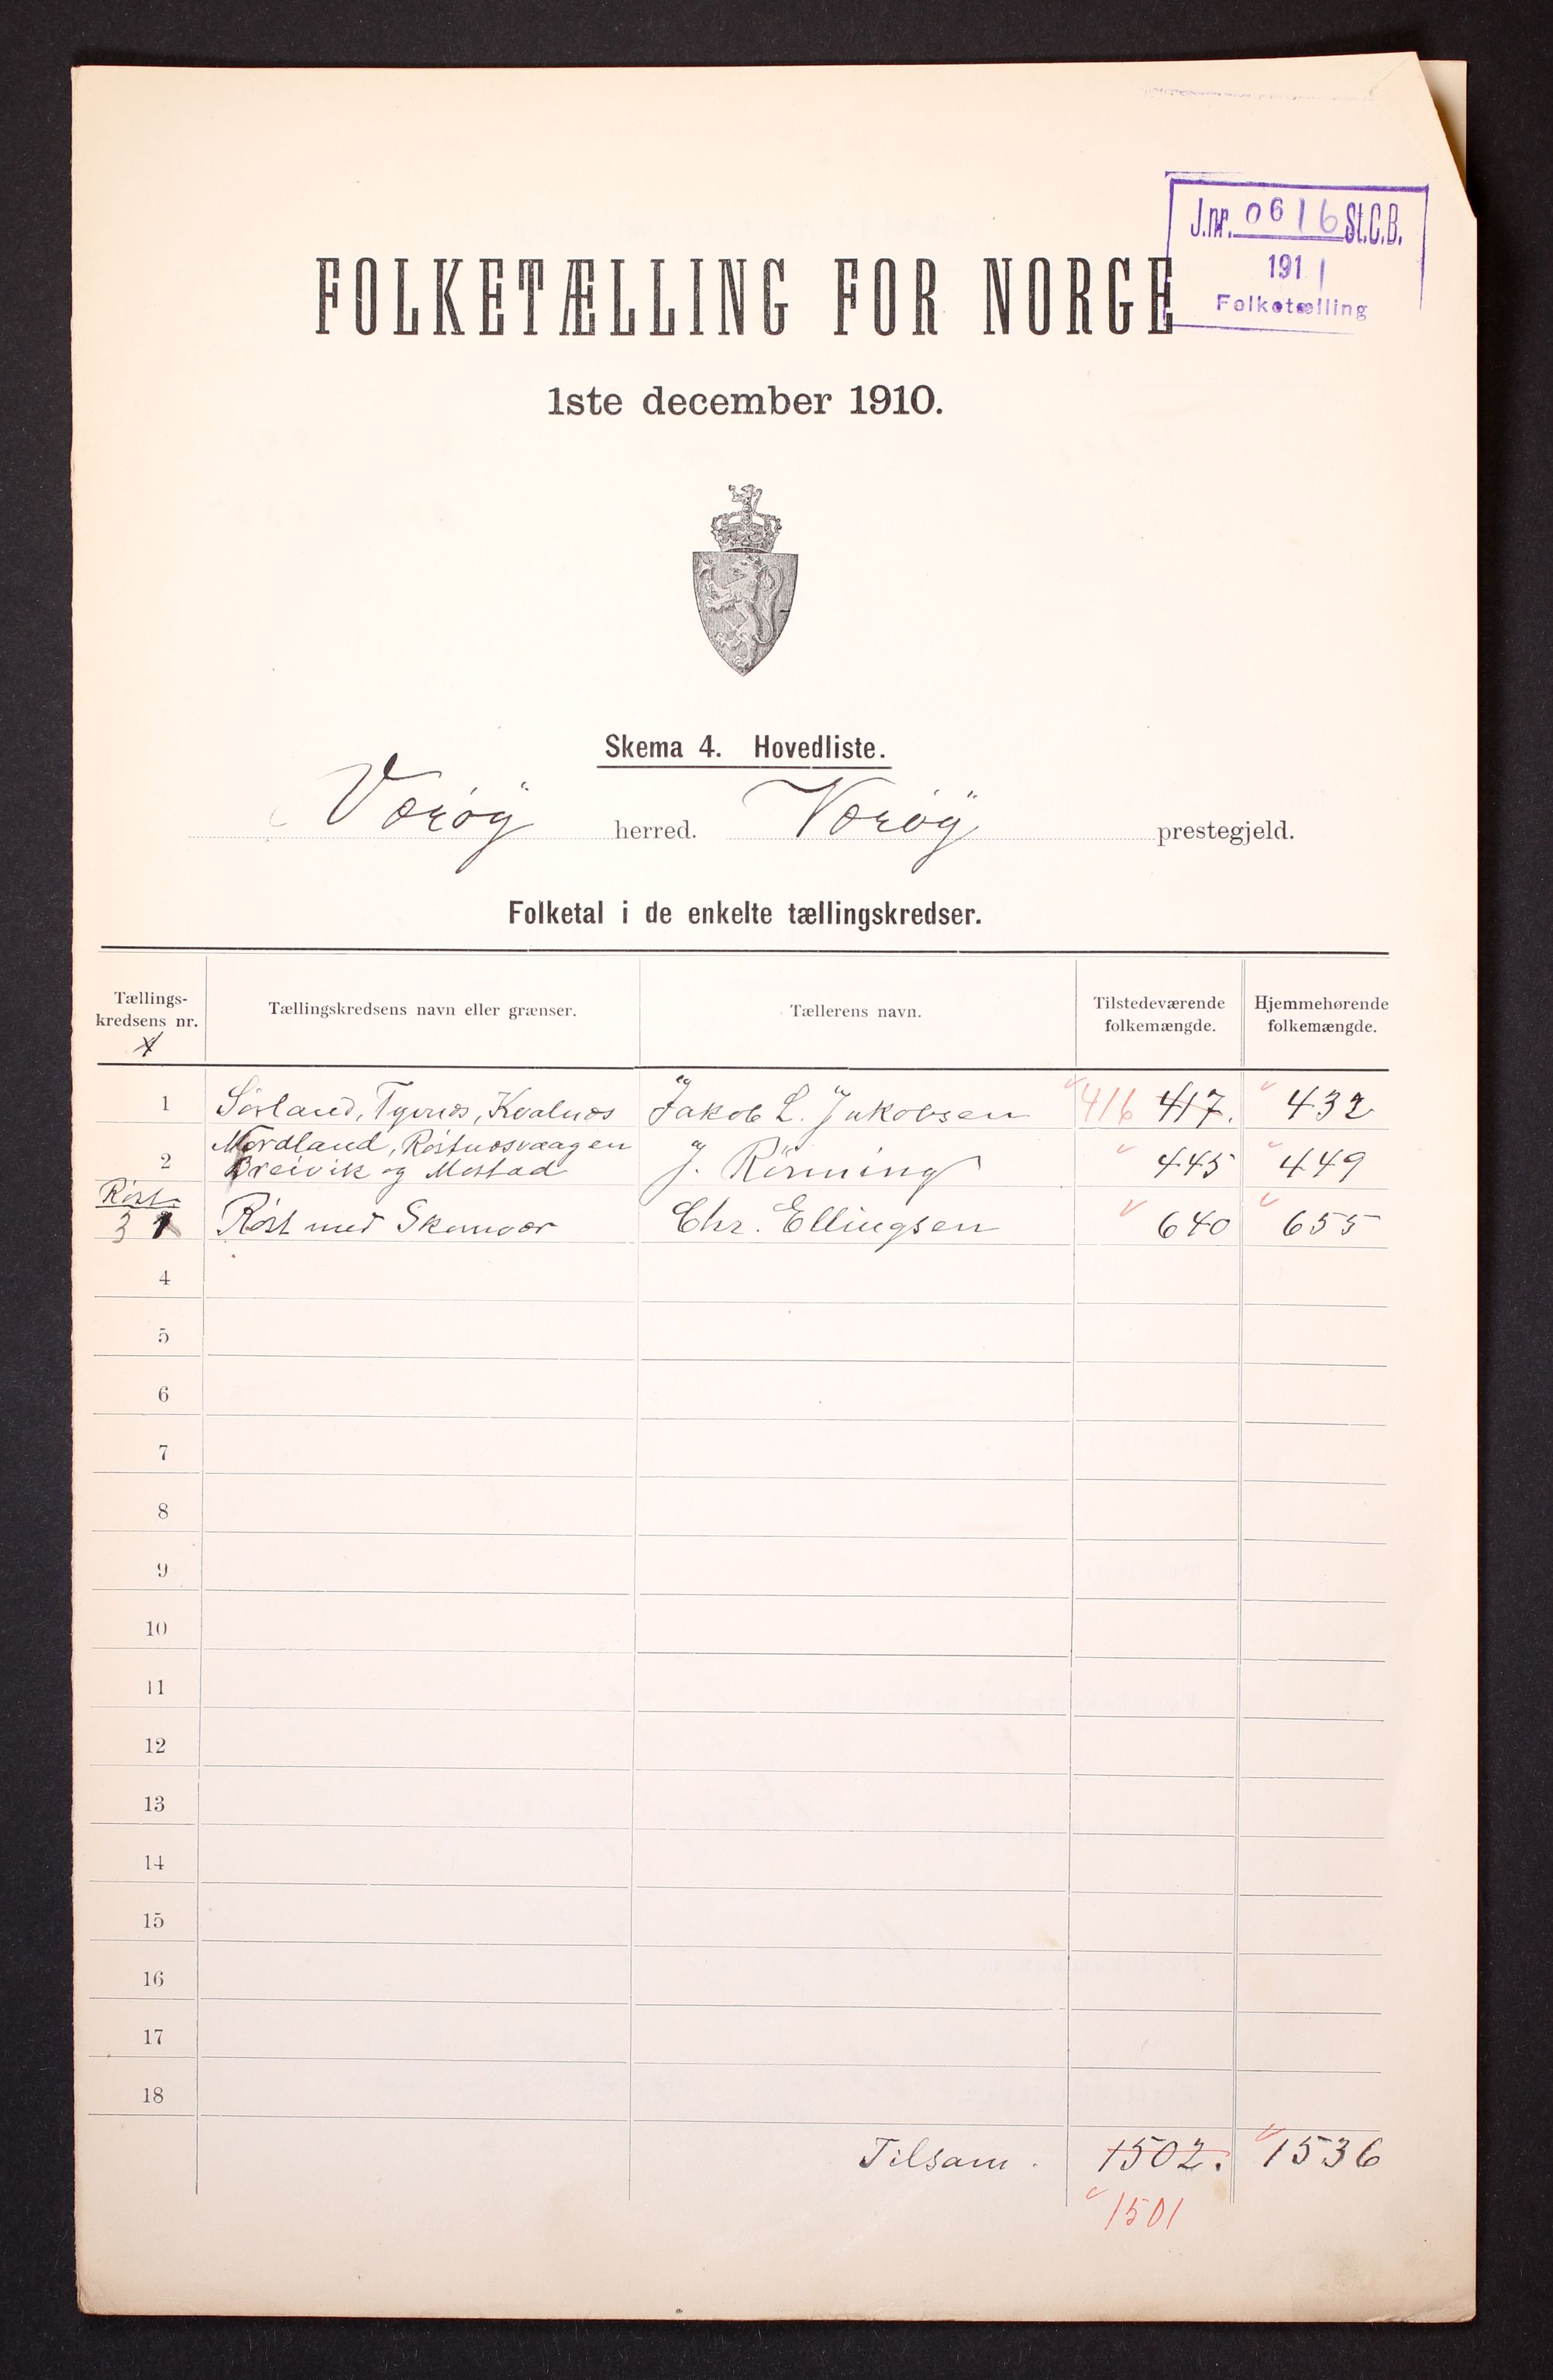 J.nr. 0616 St.C.B.
1911
Folketælling
FOLKETÆLLING FOR NORGE
1ste december 1910.
Skema 4. Hovedliste.
Værøy herred. Værøy prestegjeld.
Folketal i de enkelte tællingskredser.
Tællings-
kredsens nr.
Tællingskredsens navn eller grænser.
Tællerens navn.
Tilstedeværende
folkemængde.
Hjemmehørende
folkemængde.
1 Sørland, Tyvnæs, Kvalnæs Jakob L. Jakobsen 416 417. 432
Nordland, Røstnæsvaagen
2 Breivik og Mostad J. Rönning 445 449
Røst
3 1 Røst med Skomvær Chr. Ellingsen 640 655
4
5
6
7
8
9
10
11
12
13
14
15
16
17
18
Tilsam. 1502. 1536
1501